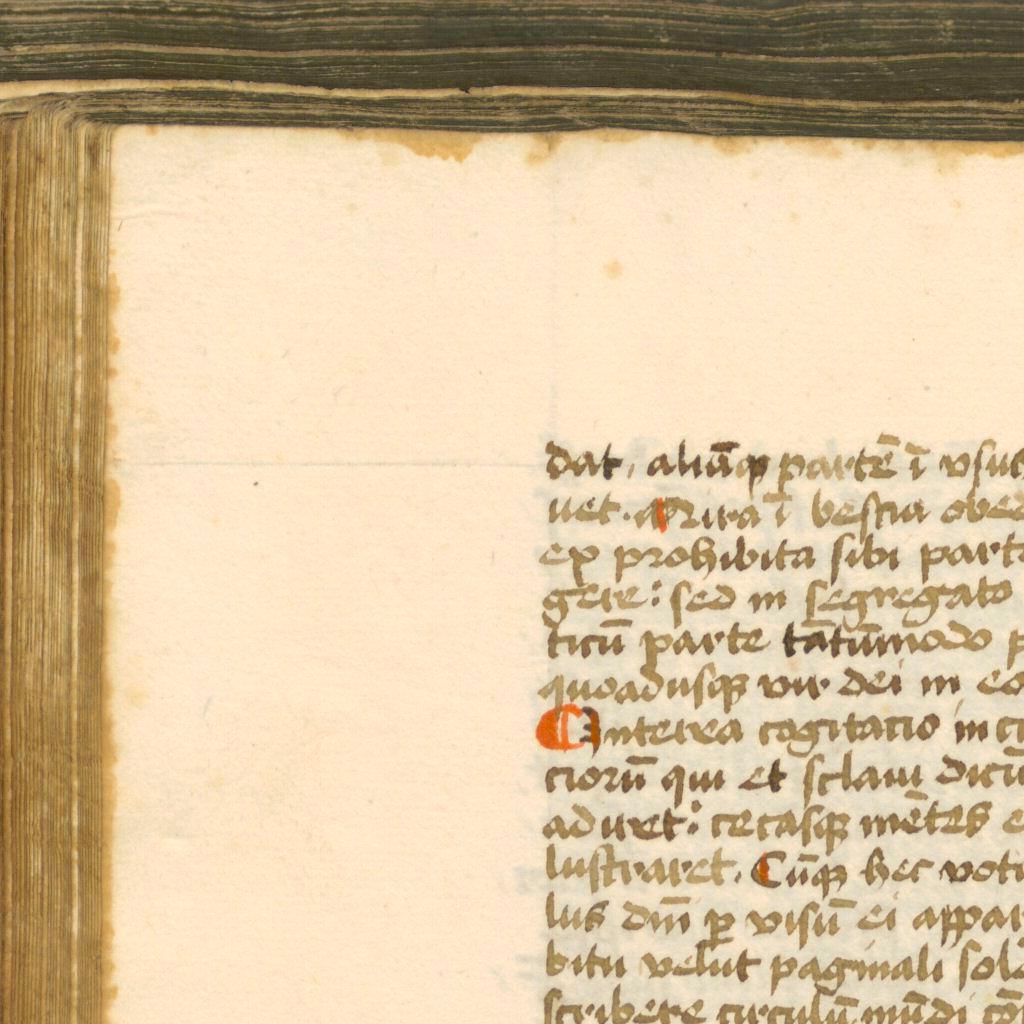 dat, aliūqꝫ partē ī usu
uet. Mira ī bestia obed
ex prohibita sibi part
gere: sed in segregato
ticū parte tātūmodo p
quoadusqꝫ vir dei in eo
Interea cogitacio in ci
ciorū qui et sclaui dicū
adiret: cecasqꝫ mētes e
lustraret. Cūqꝫ hec voti
lus dm̄ ꝑ visū ei appar
bitu velut paginali sole
scribere circulū mūdi cō